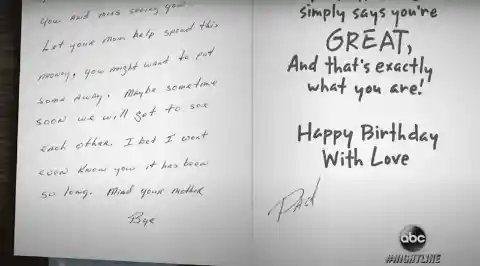 you and miss seeing you.
Let your Mom help spend this
money, you might want to put
some away. Maybe sometime
soon we will get to see
each other. I bet I wont
even know you it has been
so long. Mind your mother
Bye
simply says you're
GREAT,
And that's exactly
what you are!
Happy Birthday
With Love
Dad
abc
#NIGHTLINE